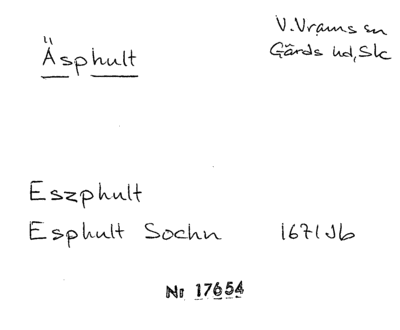 Äsphult
V. Vrams sn
Gärds hd, Skc
Eszphult
Esphult Sochn 1671 Jb
Nr 17654